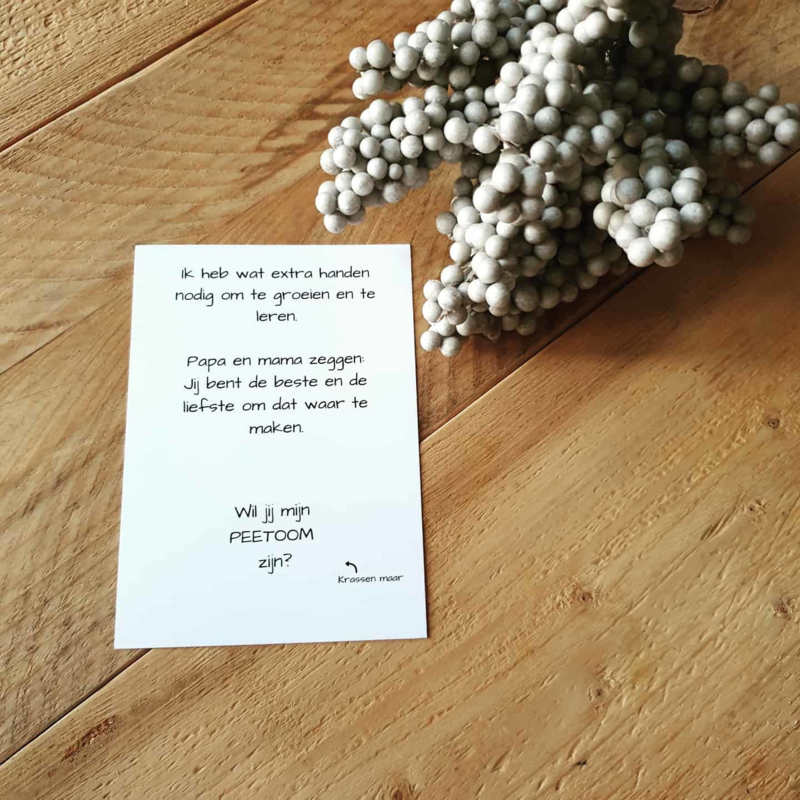 Ik heb wat extra handen
nodig om te groeien en te
leren.
Papa en mama zeggen:
Jij bent de beste en de
liefste om dat waar te
maken.
Wil jij mijn
PEETOOM
zijn?
Krassen maar